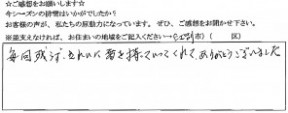 ☆ご感想をお願いします☆
今シーズンの排雪はいかがでしたか？
お客様の声が、私たちの原動力になっています。ぜひ、ご感想をお聞かせ下さい。
※差支えなければ、お住まいの地域をご記入ください→ 市）（ 区）
毎回残らず、きれいに雪を持っていってくれて、ありがとうございました